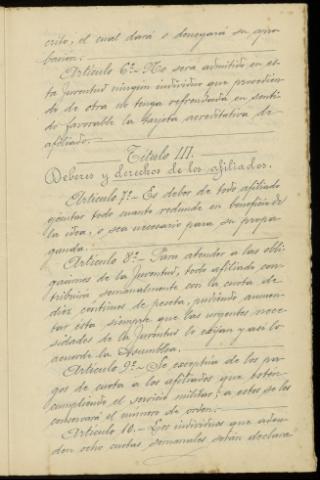 crito, el cual dará o denegará su apro-
bacion.
Artículo 6º.- No será admitido en es-
ta Juventud ningun individuo que procedien-
do de otra no tenga refrendada en senti-
do favorable la tarjeta acreditativa de
afiliado.
Título III.
Deberes y derechos de los afiliados.
Artículo 7º.- Es deber de todo afiliado
ejecutar todo cuanto redunde en beneficio de
la idea, o sea necesario para su propa-
ganda.
Artículo 8º.- Para atender a las obli-
gaciones de la Juventud, todo afiliado con-
tribuirá semanalmente con la cuota de
diez centimos de peseta, pudiendo aumen-
tar esta siempre que las urgentes nece-
sidades de la Juventud lo exijan y asi lo
acuerde la Asamblea.
Artículo 9º.- Se exceptúa de los pa-
gos de cuota a los afiliados que estén
cumpliendo el servicio militar; a estos se les
conservará el número de orden.
Artículo 10.- Los individuos que adeu-
den ocho cuotas semanales serán declara